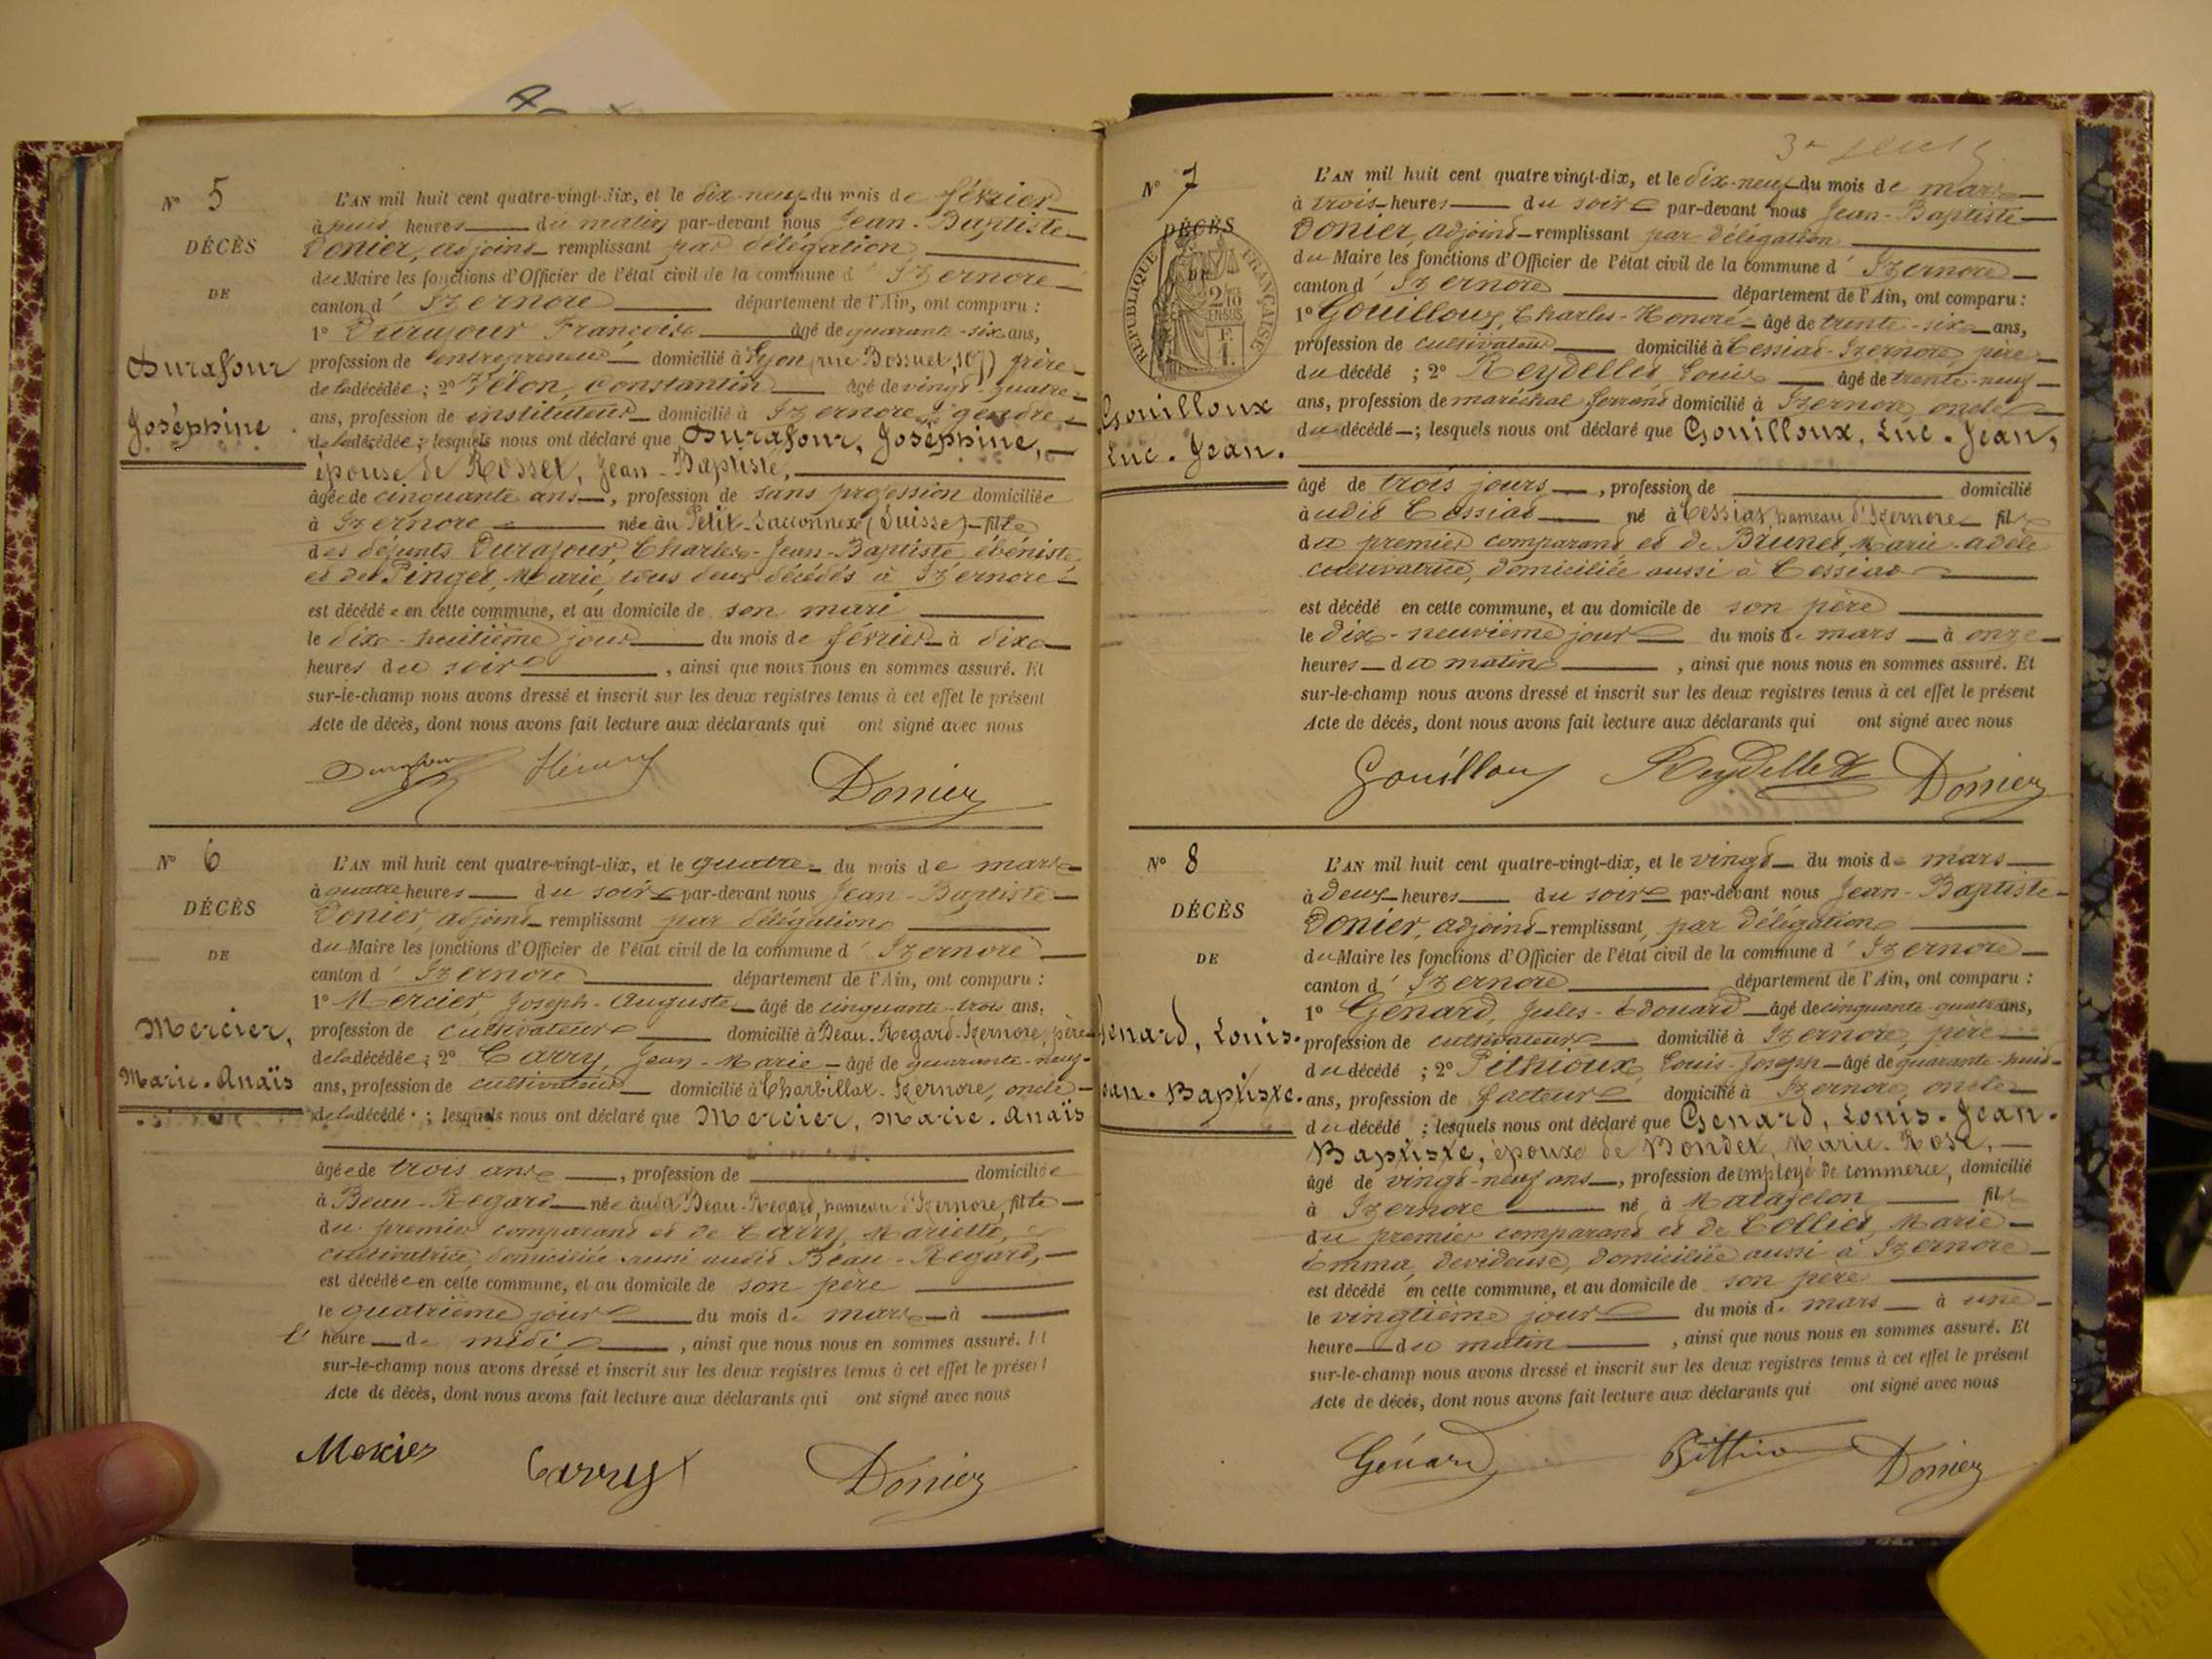 Nº 5
DÉCÈS
DE
Durafour
Joséphine
L'AN mil huit cent quatre-vingt-dix, et le dix-neuf du mois de février
à huit heures du matin par-devant nous Jean-Baptiste
Donier, adjoint remplissant par délégation
du Maire les fonctions d'Officier de l'état civil de la commune d'Izernore
canton d'Izernore département de l'Ain, ont comparu :
1º Durafour Françoise âgé de quarante-six ans,
profession de entrepreneur domicilié à Lyon, rue Bossuet, 107) frère
de la décédée ; 2º Constantin âgé de vingt-quatre
ans, profession de instituteur domicilié à Izernore, gendre
de la décédée ; lesquels nous ont déclaré que Durafour, Joséphine,
épouse de Rosset, Jean-Baptiste,
âgée de cinquante ans, profession de sans profession domiciliée
à Izernore née au Petit-Sacconnex (Suisse) fille
des défunts Durafour, Charles-Jean-Baptiste, ébéniste
et de Pinget, Marie, tous deux décédés à Izernore
est décédée en cette commune, et au domicile de son mari
le dix-huitième jour du mois de février à dix
heures du soir, ainsi que nous nous en sommes assuré. Et
sur-le-champ nous avons dressé et inscrit sur les deux registres tenus à cet effet le présent
Acte de décès, dont nous avons fait lecture aux déclarants qui ont signé avec nous
Durafour Donier
Nº 6
DÉCÈS
DE
Mercier,
Marie. Anaïs
L'AN mil huit cent quatre-vingt-dix, et le quatre du mois de mars
à quatre heures du soir par-devant nous Jean-Baptiste
Donier, adjoint remplissant par délégation
du Maire les fonctions d'Officier de l'état civil de la commune d'Izernore
canton d'Izernore département de l'Ain, ont comparu :
1º Mercier, Joseph-Auguste âgé de cinquante-trois ans,
profession de cultivateur domicilié à Beau-Regard-Izernore, père
de la décédée ; 2º Carry, Jean-Marie âgé de quarante-neuf
ans, profession de cultivateur domicilié à Charbillat-Izernore, oncle
de la décédé ; lesquels nous ont déclaré que Mercier, Marie. Anaïs
âgée de trois ans, profession de domiciliée
à Beau-Regard née audit Beau-Regard, hameau d'Izernore, fille
du premier comparant et de Carry, Mariette,
cultivatrice, domiciliée aussi audit Beau-Regard,
est décédée en cette commune, et au domicile de son père
le quatrième jour du mois de mars à
l' heure de midi, ainsi que nous nous en sommes assuré. Et
sur-le-champ nous avons dressé et inscrit sur les deux registres tenus à cet effet le présent
Acte de décès, dont nous avons fait lecture aux déclarants qui ont signé avec nous
Mercier Carry Donier
Nº 7
DÉCÈS
DE
RÉPUBLIQUE FRANÇAISE
2/10
EN SUS
Gouilloux
Luc. Jean.
L'AN mil huit cent quatre vingt-dix, et le dix-neuf du mois de mars
à trois heures du soir par-devant nous Jean-Baptiste
Donier, adjoint remplissant par délégation
du Maire les fonctions d'Officier de l'état civil de la commune d'Izernore
canton d'Izernore département de l'Ain, ont comparu :
1º Gouilloux, Charles-Honoré âgé de trente-six ans,
profession de cultivateur domicilié à Cessiat-Izernore, père
du décédé ; 2º Reydellet Louis âgé de trente-neuf
ans, profession de maréchal ferrant domicilié à Izernore, oncle
du décédé ; lesquels nous ont déclaré que Gouilloux, Luc. Jean,
âgé de trois jours, profession de domicilié
à udit Cessiat né à Cessiat, hameau d'Izernore fils
du premier comparant et de Brunet, Marie-Adèle
cultivatrice, domiciliée aussi à Cessiat
est décédé en cette commune, et au domicile de son père
le dix-neuvième jour du mois de mars à onze
heures du matin, ainsi que nous nous en sommes assuré. Et
sur-le-champ nous avons dressé et inscrit sur les deux registres tenus à cet effet le présent
Acte de décès, dont nous avons fait lecture aux déclarants qui ont signé avec nous
Gouilloux Reydellet Donier
Nº 8
DÉCÈS
DE
Genard, Louis.
Jean. Baptiste.
L'AN mil huit cent quatre-vingt-dix, et le vingt du mois de mars
à deux heures du soir par-devant nous Jean-Baptiste
Donier, adjoint remplissant par délégation
du Maire les fonctions d'Officier de l'état civil de la commune d'Izernore
canton d'Izernore département de l'Ain, ont comparu :
1º Génard, Jules-Edouard âgé de cinquante-quatre ans,
profession de cultivateur domicilié à Izernore, père
du décédé ; 2º Pithioux, Louis-Joseph âgé de quarante-huit
ans, profession de facteur domicilié à Izernore, oncle
du décédé ; lesquels nous ont déclaré que Genard, Louis. Jean.
Baptiste, époux de Bondet, Marie-Rose,
âgé de vingt-neuf ans, profession de employé de commerce, domicilié
à Izernore né à Matafelon fils
du premier comparant et de Collet, Marie
Emma, devideuse, domiciliée aussi à Izernore
est décédé en cette commune, et au domicile de son père
le vingtième jour du mois de mars à une
heure du matin, ainsi que nous nous en sommes assuré. Et
sur-le-champ nous avons dressé et inscrit sur les deux registres tenus à cet effet le présent
Acte de décès, dont nous avons fait lecture aux déclarants qui ont signé avec nous
Génard Donier